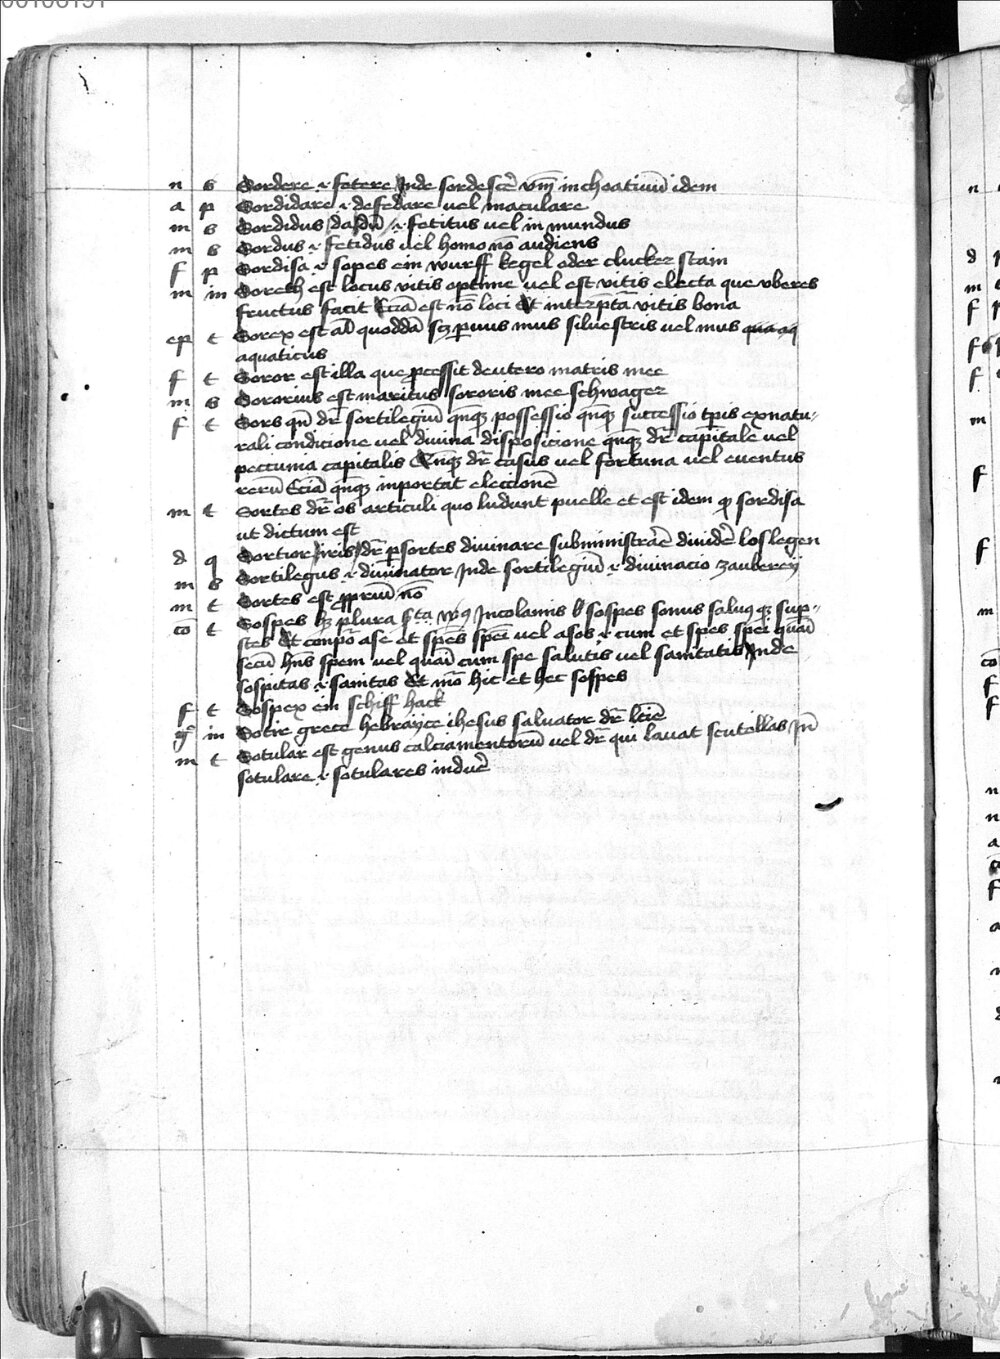 n s Sordere .i. fetere Inde sordescē vnū inchoatiuū idem
a p Sordidare .i. defedare uel maculare
m s Sordidus da dū .i. fetitus uel in mundus
m s Sordus .i. fetidus uel homo nō audiens
f p Sordisa .i. sopes ein wurff kegel oder clucker stain
m in Soreth est locus vitis optime uel est vitis electa que vberes
fructus facit Eciā est nō loci Et interp̄ta vitis bona
ep t Sorex est aāl quoddā sꝫ paruus mus siluestris uel mus
aquaticus
f t Soror est illa que ꝓcessit deutero matris mee
m s Sororius est maritus sororis mee schwager
f t Sors qn̄ dr̄ sortilegiū qn̄qꝫ possessio qn̄qꝫ successio tp̄is exnatu-
rali condicione uel diuina disposicione qn̄qꝫ dr̄ capitale uel
peccunia capitalis Qn̄qꝫ dr̄ casus uel fortuna uel euentus
rerū Eciā qn̄qꝫ inportat eleccionē
m t Sortes dr̄ os articuli quo ludunt puelle et est idem qd sordisa
ut dictum est
d q Sortior iris dr̄ ꝑ sortes diuinare subministrare diuidē loslegen
m s Sortilegus .i. diuinator Inde sortilegiū .i. diuinacio zauberey
m t Sortes est ꝓpriū nō
cō t Sospes Incolamis sospes sanus saluus qꝫ sup-
stes Et compō ase et spes spei uel asos .i. cum et spes spei quasi
secū hn̄s spem uel quasi cum spe salutis uel sanitatis Inde
sospitas .i. sanitas Et nō hic et hec sospes
f t Sospex ein schiff hack
in Sotir grece hebrayce ihesus saluator dr̄
m t Sotular est genus calciamentorū uel dr̄ qui lauat scutellas In
sotulare .i. sotulares induē